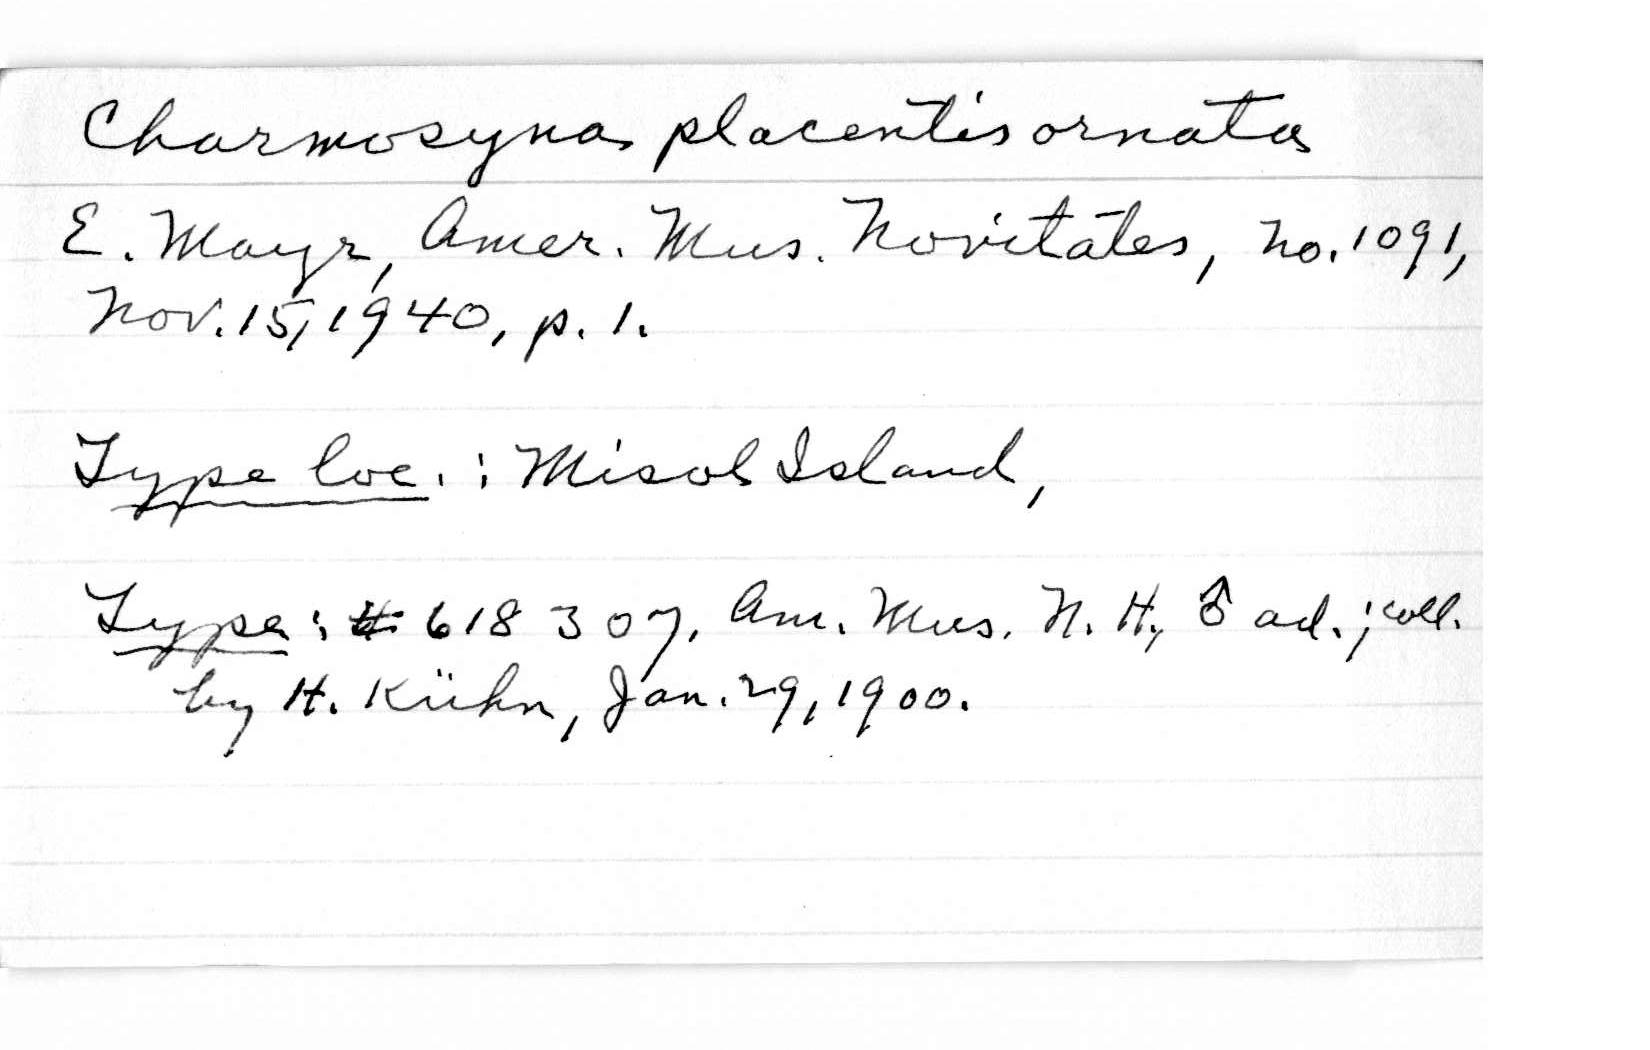 Charmosyna placentis ornata
E. Mayr, Amer. Mus. Novitates, no. 1091,
Nov. 15, 1940, p. 1.
Type loc. : Misol Island,
Type : # 618307, Am. Mus. N. H., ♂ ad. ; coll.
by H. Kühn, Jan. 29, 1900.